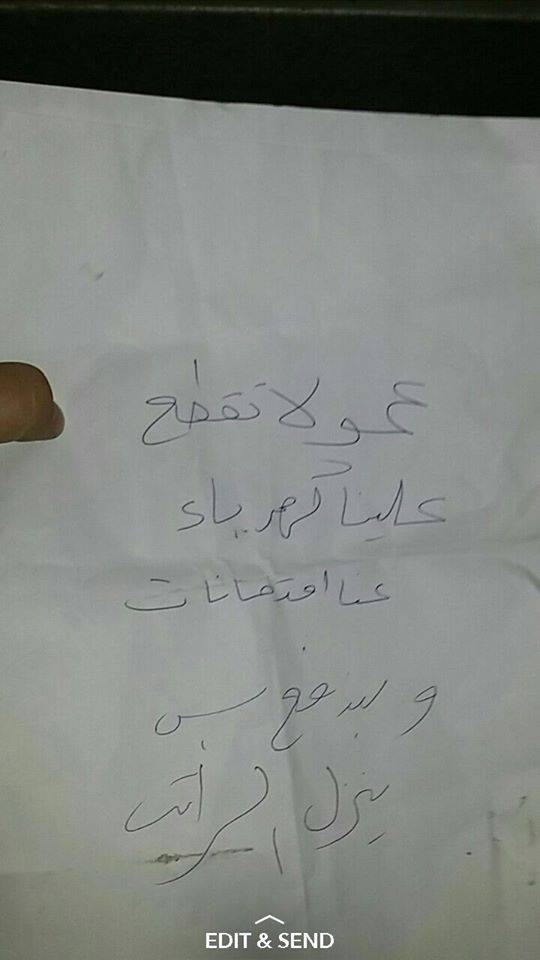 عمو لا تقطع
علينا كهرباء
عنا امتحانات
و بندفع بس
ينزل الراتب
EDIT & SEND